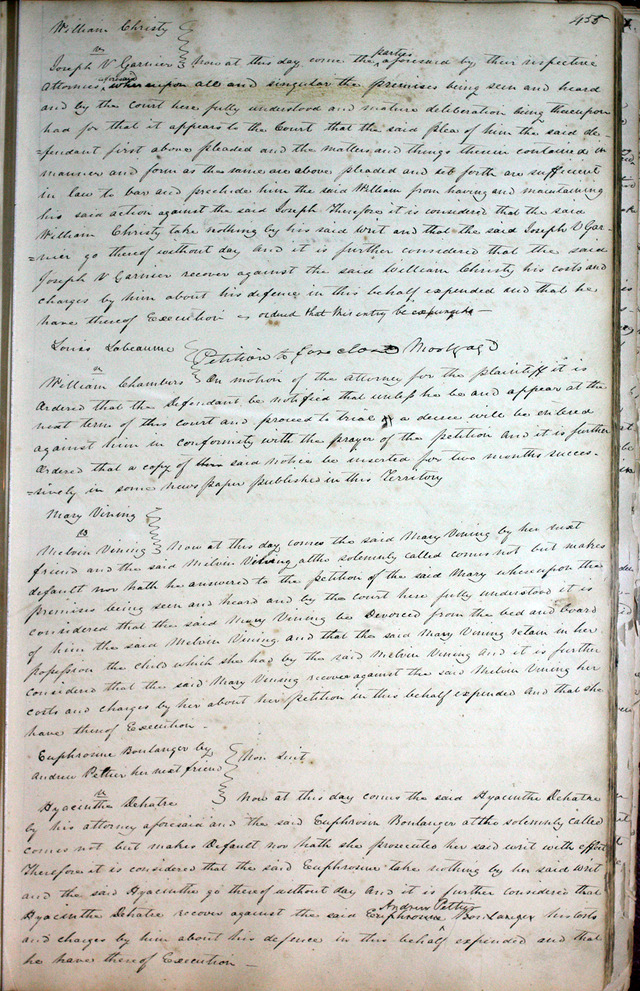 455
William Christy
vs
Joseph V Garnier } Now at this day come the parties aforesaid by their respective
attornies aforesaid whereupon all and singular the premises being seen and heard
and by the Court here fully understood and mature deliberation being thereupon
had for that it appears to the Court that the said plea of him the said de-
=fendant first above pleaded and the matters and things therein contained in
manner and form as the same are above pleaded and set forth are sufficient
in law to bar and preclude him the said William from having and maintaining
his said action against the said Joseph Therefore it is considered that the said
William Christy take nothing by his said writ and that the said Joseph V Gar-
=nier go thereof without day and it is further considered that the said
Joseph V Garnier recover against the said William Christy his costs and
charges by him about his defence in this behalf expended and that he
have thereof Execution is ordered that this entry be expunged —
Louis Labeaume
vs } Petition to foreclose Mortgage
William Chambers } On motion of the attorney for the plaintiff it is
Ordered that the Defendant be notified that unless he be and appear at the
next term of this court and proceed to trial a decree will be entered
against him in conformity with the prayer of the petition and it is further
Ordered that a copy of said notice be inserted for two months succes-
=sively in some news paper published in this Territory
Mary Vining
vs
Melvin Vining } Now at this day comes the said Mary Vining by her next
friend and the said Melvin Vining altho solemnly called comes not but makes
default nor hath he answered to the petition of the said Mary whereupon the
premises being seen and heard and by the court here fully understood it is
considered that the said Mary Vining be Divorced from the bed and board
of him the said Melvin Vining and that the said Mary Vining retain in her
possession the child which she had by the said Melvin Vining and it is further
considered that the said Mary Vining recover against the said Melvin Vining her
costs and charges by her about her petition in this behalf expended and that she
have thereof Execution -
Euphrosine Boulanger by
Andrew Peltier her next friend } Non Suit
vs
Hyacinthe Dehatre } Now at this day comes the said Hyacinthe Dehatre
by his attorney aforesaid and the said Euphrosine Boulanger altho solemnly called
comes not but makes Default nor hath she prosecuted her said writ with effect
Therefore it is considered that the said Euphrosine take nothing by her said writ
and the said Hyacinthe go thereof without day And it is further considered that
Hyacinthe Dehatre recover against the said Euphrosine Boulanger Andrew his costs
and charges by him about his defence in this behalf expended and that
he have thereof Execution —